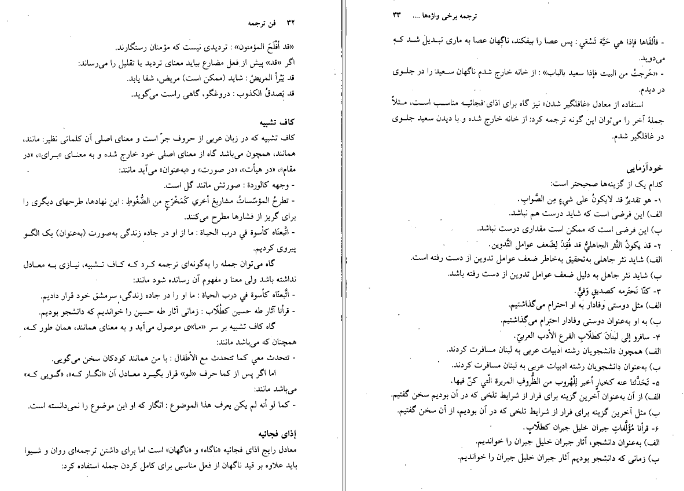 ۳۲ فن ترجمه
«قد أفْلَحَ المؤمنون» : تردیدی نیست که مؤمنان رستگارند.
اگر «قد» پیش از فعل مضارع بیاید معنای تردید یا تقلیل را می‌رساند:
قد یَبْرأ المریضُ : شاید (ممکن است) مریض، شفا یابد.
قد یَصدقُ الکذوب : دروغگو، گاهی راست می‌گوید.
کاف تشبیه
کاف تشبیه که در زبان عربی از حروف جرّ است و معنای اصلی آن کلماتی نظیر: مانند،
همانند، همچون می‌باشد گاه از معنای اصلی خود خارج شده و به معنای «برای»، «در
مقام»، «در هیأت»، «در صورت» و «به‌عنوان» می‌آید مانند:
- وجهه کالوردة : صورتش مانند گل است.
- تطرحُ المؤسّساتُ مشاریعَ أخری کَمَخْرَجٍ مِن الضُّغُوطِ : این نهادها، طرحهای دیگری را
برای گریز از فشارها مطرح می‌کنند.
- اتّبعناه کأسوة في درب الحیاة : ما از او در جاده زندگی به‌صورت (به‌عنوان) یک الگو
پیروی کردیم.
گاه می‌توان جمله را به‌گونه‌ای ترجمه کرد که کاف تشبیه، نیازی به معادل
نداشته باشد ولی معنا و مفهوم آن رسانده شود مانند:
- اتّبعناه کأسوة في درب الحیاة : ما او را در جاده زندگی، سرمشق خود قرار دادیم.
- قرأنا آثار طه حسین کطلّاب : زمانی آثار طه حسین را خواندیم که دانشجو بودیم.
گاه کاف تشبیه بر سر «ما»ی موصول می‌آید و به معنای همانند، همان طور که،
همچنان که می‌باشد مانند:
- تتحدث معي کما تتحدث مع الأطفال : با من همانند کودکان سخن می‌گویی.
اما اگر پس از کما حرف «لو» قرار بگیرد معادل آن «انگار که»، «گویی که»
می‌باشد مانند:
- کما لو أنه لم یکن یعرف هذا الموضوع : انگار که او این موضوع را نمی‌دانسته است.
إذای فجائیه
معادل رایج إذای فجائیه «ناگاه» و «ناگهان» است اما برای داشتن ترجمه‌ای روان و شیوا
باید علاوه بر قید ناگهان از فعل مناسبی برای کامل کردن جمله استفاده کرد:
ترجمه برخی واژه‌ها .... ۳۳
- فألقاها فإذا هي حیّة تَسْعَی : پس عصا را بیفکند، ناگهان عصا به ماری تبدیل شد که
می‌دوید.
- «خرجتُ من البیت فإذا سعید بالباب» : از خانه خارج شدم ناگهان سعید را در جلوی
در دیدم.
استفاده از معادل «غافلگیر شدن» نیز گاه برای إذای فجائیه مناسب است، مثلاً
جملهٔ آخر را می‌توان این گونه ترجمه کرد: از خانه خارج شده و با دیدن سعید جلوی
در غافلگیر شدم.
خودآزمایی
کدام یک از گزینه‌ها صحیحتر است:
۱- هو تقدیرٌ قد لایکونُ علی شيءٍ مِن الصَّوابِ.
الف) این فرضی است که شاید درست هم نباشد.
ب) این فرضی است که ممکن است مقداری درست نباشد.
۲- قد یکونُ النَّثر الجاهليُّ قد فُقِدَ لِضعف عوامل التَّدوین.
الف) شاید نثر جاهلی به‌تحقیق به‌خاطر ضعف عوامل تدوین از دست رفته است.
ب) شاید نثر جاهل به دلیل ضعف عوامل تدوین از دست رفته باشد.
۳- کنّا نَحْترمه کصدیقٍ وَفيٍّ.
الف) مثل دوستی وفادار به او احترام می‌گذاشتیم.
ب) به او به‌عنوان دوستی وفادار احترام می‌گذاشتیم.
۴- سافرو إلی لبنانَ کطلّابِ الفرع الأدب العربيّ.
الف) همچون دانشجویان رشته ادبیات عربی به لبنان مسافرت کردند.
ب) به‌عنوان دانشجویان رشته ادبیات عربی به لبنان مسافرت کردند.
۵- تَحَدَّثنا عنه کخیارٍ أخیرٍ لِلْهُروبِ من الظُّروفِ المریرة الّتي کنّا فیها.
الف) از آن به‌عنوان آخرین گزینه برای فرار از شرایط تلخی که در آن بودیم سخن گفتیم.
ب) مثل آخرین گزینه برای فرار از شرایط تلخی که در آن بودیم، از آن سخن گفتیم.
۶- قرأنا مُؤلَّفاتِ جبران خلیل جبران کطلّابٍ.
الف) به‌عنوان دانشجو، آثار جبران خلیل جبران را خواندیم.
ب) زمانی که دانشجو بودیم آثار جبران خلیل جبران را خواندیم.